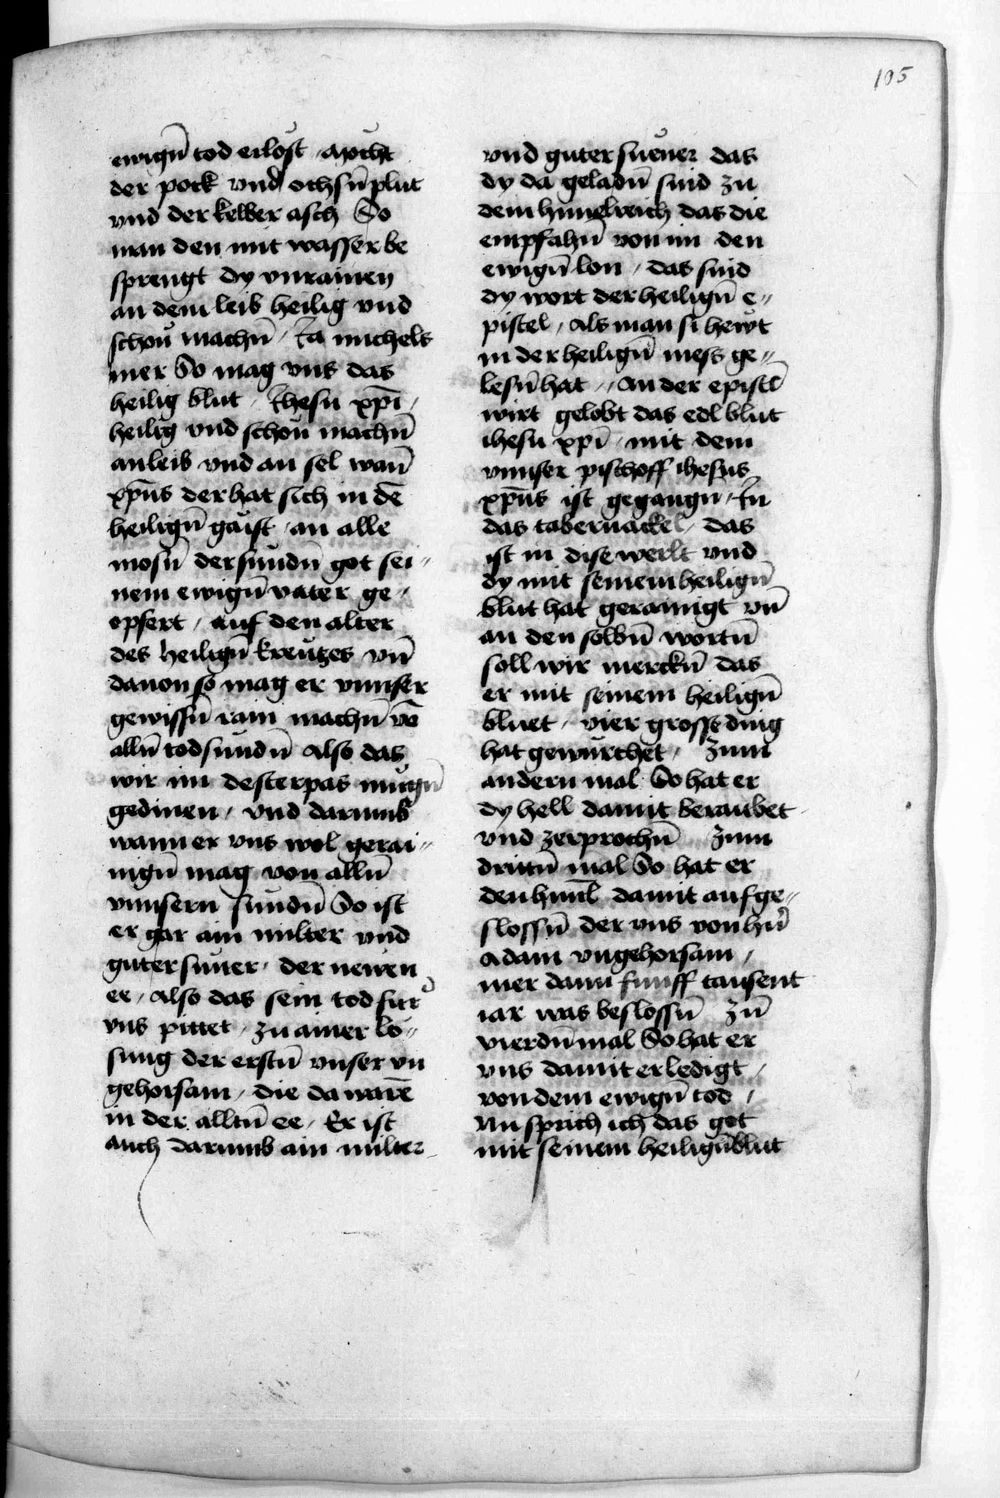 105
ewigñ tod erlost
der pock vnd ochsñ plut
vnd der kelber asch So
man den mit wasser be
sprengt dy vnrainen
an dem leib heilig vnd
schoͤn machñ / Ja michels
mer So mag vns das
heilig blut / Jhesu xp̄i /
heilig vnd schoͤn machñ
an leib vnd an sel wañ
xp̄us der hat sich in dē
heiligñ gaist / an alle
mosñ der sundñ got sei⸗
nem ewigñ vater ge⸗
opfert / auf den alter
des heiligñ kreutzes vñ
dauon so mag er vnnser
gewissñ rain machñ vō
allñ todsundñ Also das
wir im dester pas mugñ
gedinen / vnd darumb
wann er vns wol gerai⸗
nigñ mag von allñ
vnnsern sundñ So ist
er gar ain milter vnd
guter suner / der newen
ee / also das sein tod fur
vns pittet / zu ainer lo⸗
sung der erstñ vnser vn
gehorsam / die da warē
in der alltñ ee / Er ist
auch darumb ain milter
vnd guter suener das
dy da geladñ sind zu
dem himelreich das die
empfahñ von im den
ewigñ lon / das sind
dy wort der heiligñ e⸗
pistel / als man si hewt
in der heiligñ mess ge⸗
lesñ hat / an der epistl
wirt gelobt das edl blut
ihesu xp̄i / mit dem
vnnser pischoff ihesus
xp̄us ist gegangn / In
das tabernackel / das
ist in dise werlt vnd
dy mit seinem heiligñ
blut hat gerainigt vñ
an den selbñ wortñ
soll wir merckñ das
er mit seinem heiligñ
bluet / vier grosse ding
hat gewurchet / Zum
andern mal So hat er
dy hell damit beraubet
vnd zerprochñ Zum
drittñ mal So hat er
den himl damit aufge⸗
slossñ der vns von hñ
adam vngehorsam /
mer dann funff tausent
iar was beslossñ Zū
vierdñ mal So hat er
vns damit erledigt /
von dem ewigñ tod /
Nu sprich ich das got
mit seinem heiligñ blut